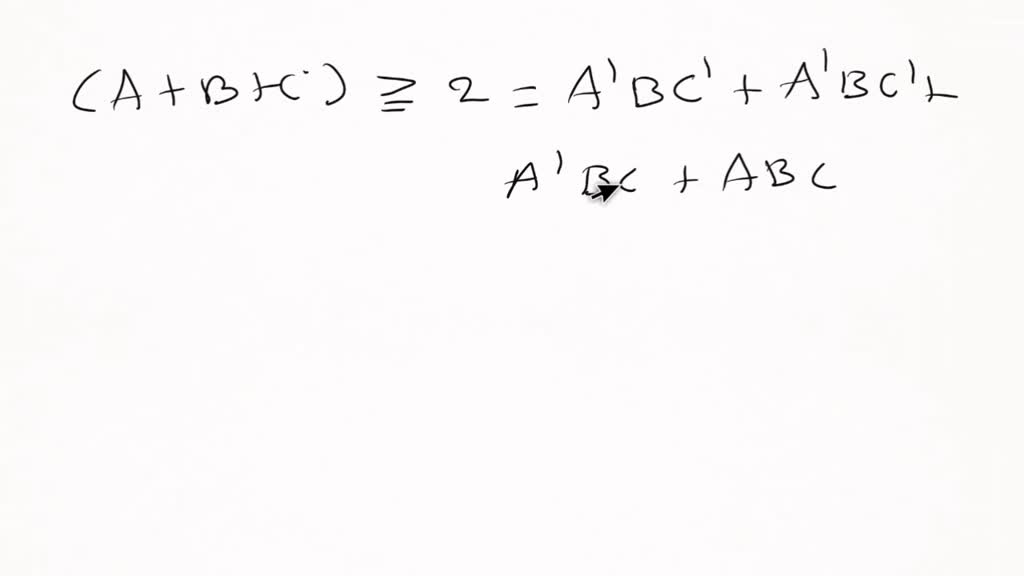 (A + B + C) ≥ 2 = A'BC' + A'BC' +
A'BC + ABC